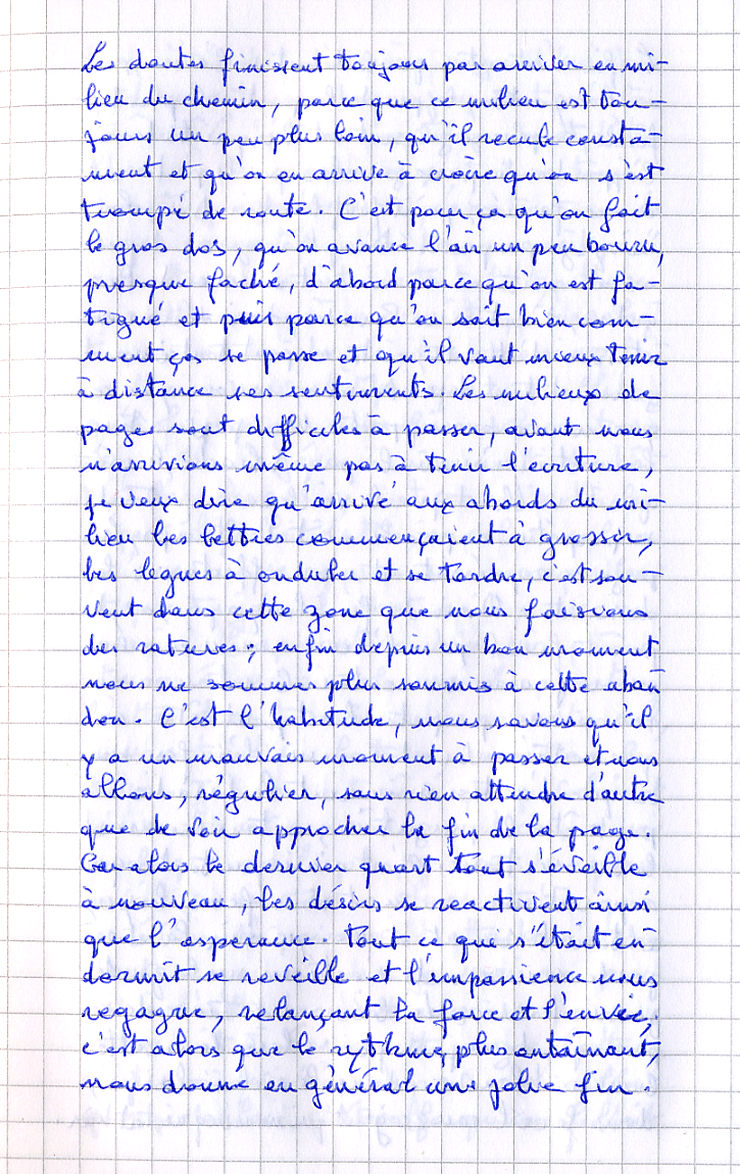 Les doutes finissent toujours par arriver en mi-
lieu du chemin, parce que ce milieu est tou-
jours un peu plus loin, qu'il recule consta-
ment et qu'on en arrive à croire qu'on s'est
trompé de route. C'est pour ça qu'on fait
le gros dos, qu'on avance l'air un peu bourru,
presque faché, d'abord parce qu'on est fa-
tigué et puis parce qu'on sait bien com-
ment ças se passe et qu'il vaut mieux tenir
à distance ses sentiments. Les milieux de
pages sont difficiles à passer, avant nous
n'arrivions même pas à tenir l'écriture,
je veux dire qu'arrivé aux abords du mi-
lieu les lettres commençaient à grossir,
les lignes à onduler et se tordre, c'est sou-
vent dans cette zone que nous faisions
des ratures ; enfin depuis un bon moment
nous ne sommes plus soumis à cette aban
don. C'est l'habitude, nous savons qu'il
y a un mauvais moment à passer et nous
allons, régulier, sans rien attendre d'autre
que de voir approcher la fin de la page.
Car alors le dernier quart tout s'éveille
à nouveau, les désirs se reactivent ainsi
que l'esperance. Tout ce qui s'était en
dormit se reveille et l'impassience nous
regagne, relançant la force et l'envie,
c'est alors que le rythme, plus entaînant,
nous donne en général une jolie fin.